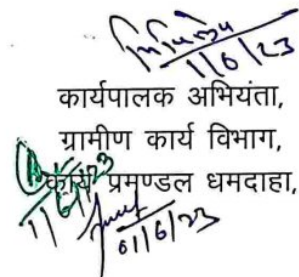 1/6/23
कार्यपालक अभियंता,
ग्रामीण कार्य विभाग,
कार्य प्रमण्डल धमदाहा,
01/6/23